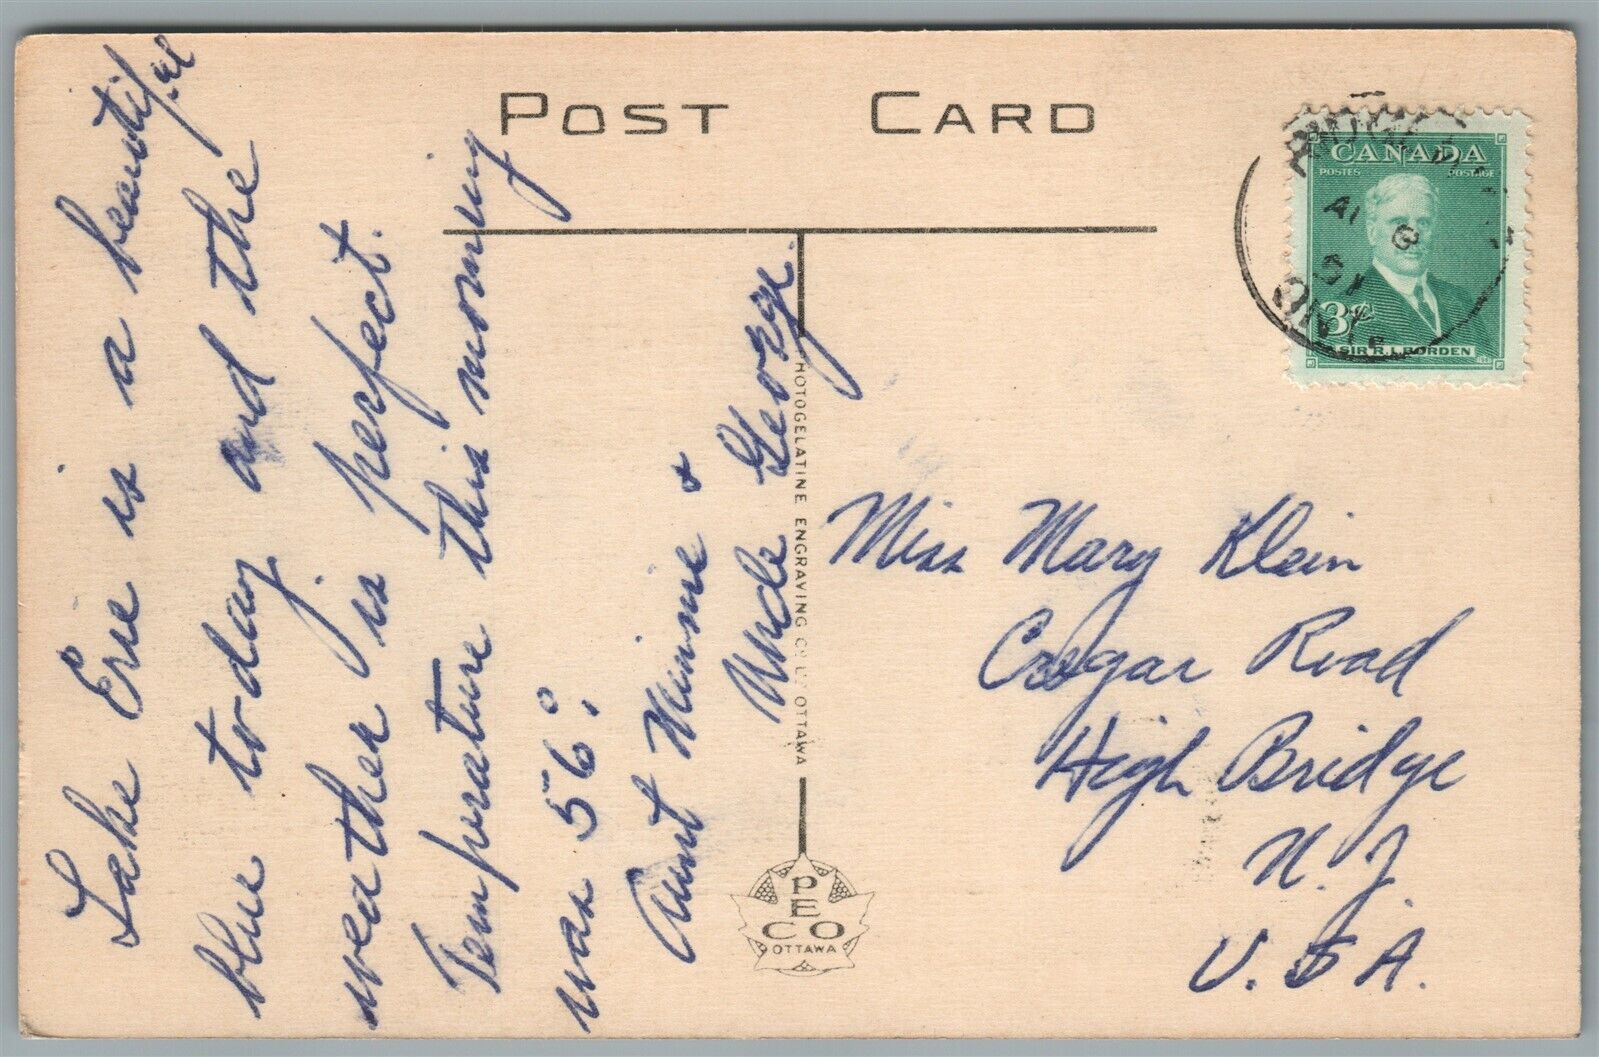 POST CARD
Lake Erie is a beautiful
blue today and the
weather is perfect.
Temperature this morning
was 56°.
Aunt Minnie &
Uncle George.
PHOTOGELATINE ENGRAVING CO. LTD OTTAWA
PECO
OTTAWA
CANADA
POSTES POSTAGE
3¢
SIR R.L.BORDEN
ONT.
Miss Mary Klein
Cregar Road
High Bridge
N. J.
U. S. A.